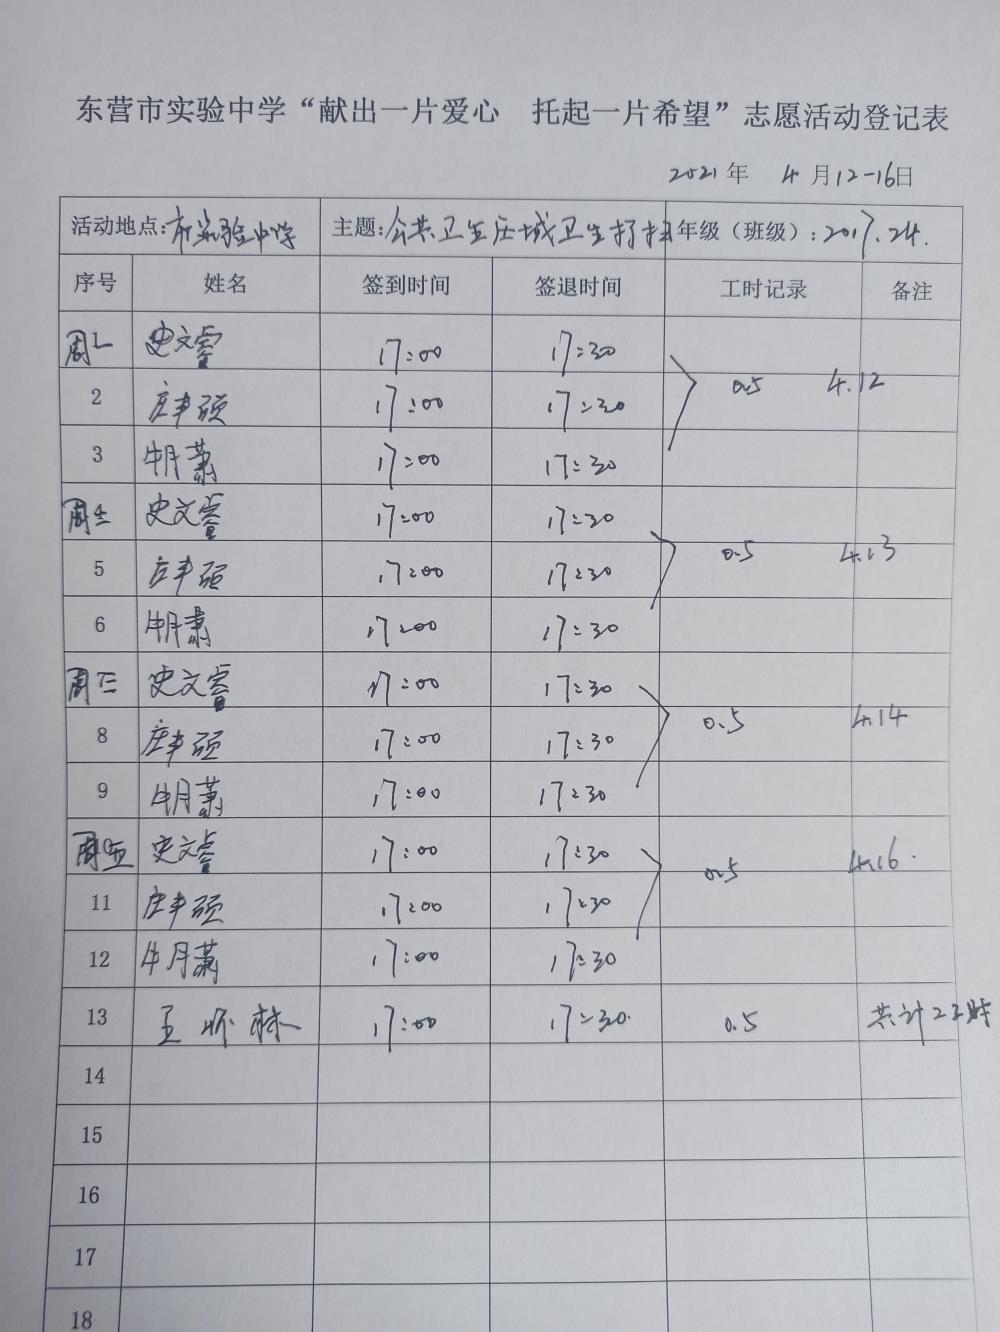 东营市实验中学“献出一片爱心 托起一片希望”志愿活动登记表
2021年 4月12-16日
活动地点:市实验中学 主题:公共卫生区域卫生打扫 年级（班级）:2017.24.
序号 姓名 签到时间 签退时间 工时记录 备注
周一 史文睿 17:00 17:30
0.5 4.12
2 庄丰硕 17:00 17:30
3 牛月萧 17:00 17:30
周二 史文睿 17:00 17:30
0.5 4.13
5 庄丰硕 17:00 17:30
6 牛月萧 17:00 17:30
周三 史文睿 17:00 17:30
0.5 4.14
8 庄丰硕 17:00 17:30
9 牛月萧 17:00 17:30
周五 史文睿 17:00 17:30
0.5 4.16.
11 庄丰硕 17:00 17:30
12 牛月萧 17:00 17:30
13 王怀林 17:00 17:30. 0.5 共计2工时
14
15
16
17
18